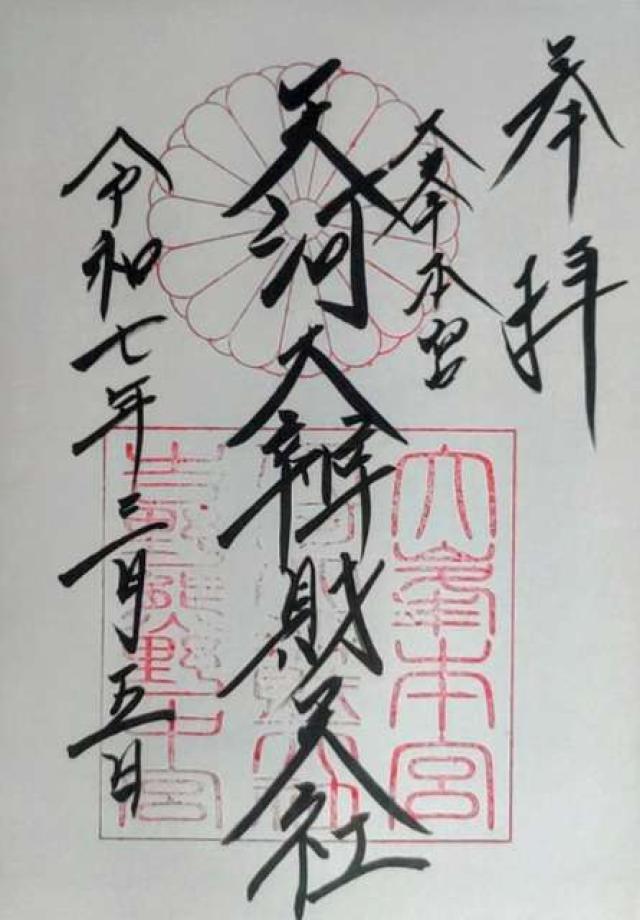 奉拝
大峯本宮
天河大辨財天社
令和七年三月五日
大峯本宮
吉野熊野中宮